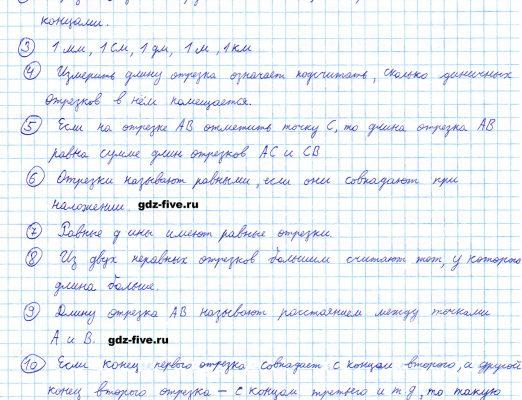 концами.
③ 1 мм, 1 см, 1 дм, 1 м, 1 км
④ Измерить длину отрезка означает подсчитать, сколько диничных
отрезков в нём помещается.
⑤ Если на отрезке АВ отметить точку С, то длина отрезка АВ
равна сумме длин отрезков АС и СВ
⑥ Отрезки называют равными, если они совпадают при
наложении.
gdz-five.ru
⑦ Равные д ины имеют равные отрезки.
⑧ Из двух неравных отрезков большим считают тот, у которого
длина больше.
⑨ Длину отрезка АВ называют расстоянием между точками
А и В.
gdz-five.ru
⑩ Если конец первого отрезка совпадает с концом второго, а другой
конец второго отрезка – с концом третьего и т д, то такую